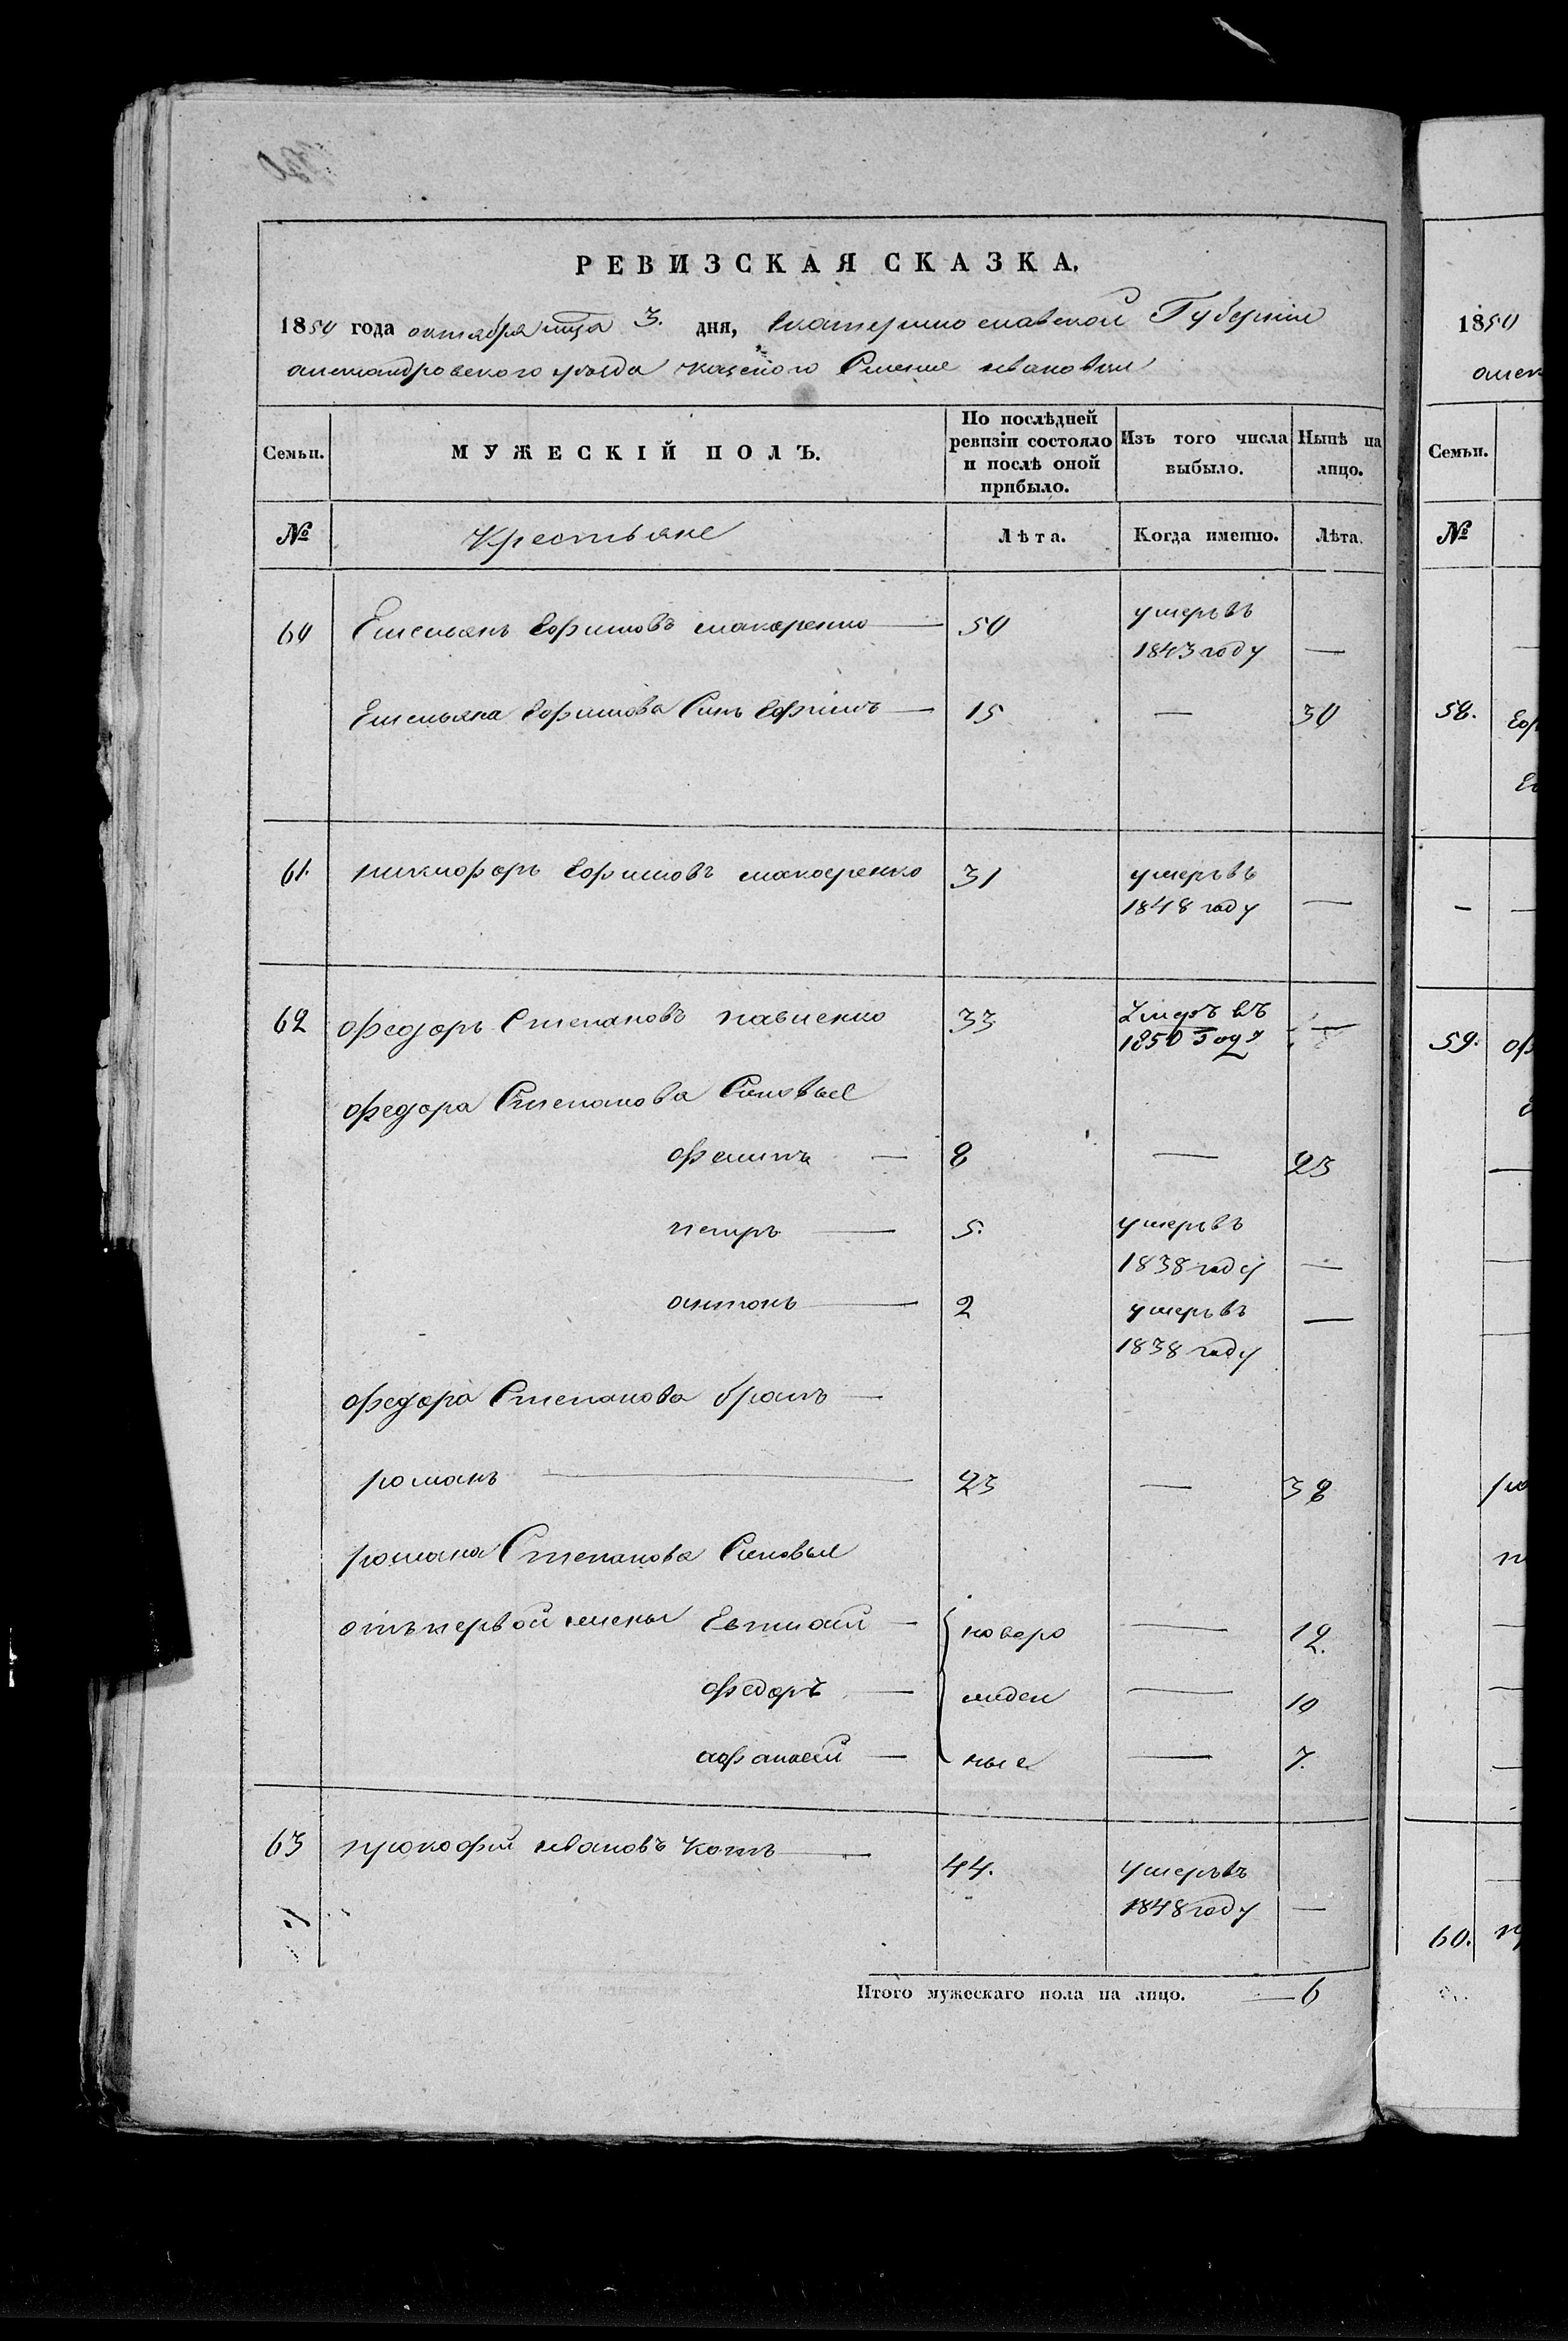 РЕВИЗСКАЯ СКАЗКА.
1850 года октября мца 3. дня, Екатеринославской Губернии
александровского уезда казеного Селения ивановки
Семьи. МУЖЕСКІЙ ПОЛЪ. По послѣдней ревизіи состояло и послѣ оной прибыло. Изъ того числа выбыло. Нынѣ на лицо.
№ Крестьяне Лѣта. Когда именно. Лѣта.
60 Емельянъ Ефимовъ макаренко — 50 умеръ въ
1843 году —
Емельяна Ефимова Синъ Ефимъ — 15 — 30
61. никифоръ Ефимовъ макаренко 31 умеръ въ
1848 году —
62 федоръ Степановъ павленко 33 Умеръ въ
1850 Году —
федора Степанова Синовье
филипъ — 8 — 23
петръ — 5. умеръ въ
1838 году —
антонъ — 2 умеръ въ —
1838 году
федора Степанова братъ —
романъ — 23 — 38
романа Степанова Синовье
отъ первой жены Евтихий — новоро — 12.
федоръ — жден — 10
афанасий — ные — 7.
63 прокофий ивановъ Котъ — 44. умеръ въ
1848 году —
Итого мужескаго пола на лицо. — 6
1850
алек
Семьи.
№
58. Еф
59. оф
60.